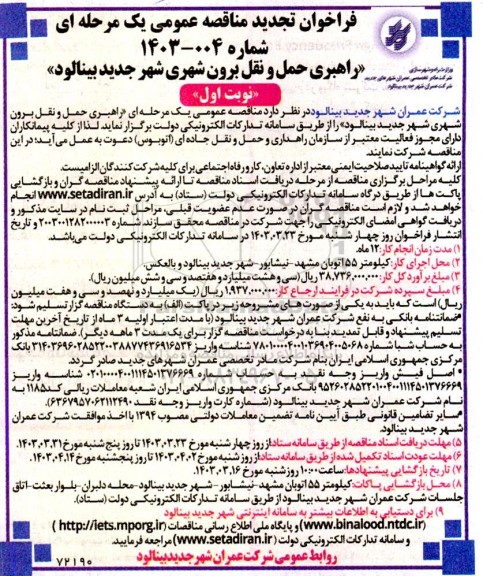 فراخوان تجدید مناقصه عمومی یک مرحله ای
شماره ۰۰۴-۱۴۰۳
«راهبری حمل و نقل برون شهری شهر جدید بینالود»
وزارت راه و شهرسازی
شرکت مادر تخصصی عمران شهرهای جدید
شرکت عمران شهر جدید بینالود
«نوبت اول»
شرکت عمران شهر جدید بینالود در نظر دارد مناقصه عمومی یک مرحله ای «راهبری حمل و نقل برون
شهری شهر جدید بینالود» را از طریق سامانه تدارکات الکترونیکی دولت برگزار نماید. لذا از کلیه پیمانکاران
دارای مجوز فعالیت معتبر از سازمان راهداری و حمل و نقل جاده ای (اتوبوس) دعوت به عمل می آید؛ در این
مناقصه شرکت نمایند.
ارائه گواهینامه تایید صلاحیت ایمنی معتبر از اداره تعاون، کار و رفاه اجتماعی برای کلیه شرکت کنندگان الزامیست.
کلیه مراحل برگزاری مناقصه از مرحله دریافت اسناد مناقصه تا ارائه پیشنهاد مناقصه گران و بازگشایی
پاکت ها از طریق درگاه سامانه تدارکات الکترونیکی دولت (ستاد) به آدرس www.setadiran.ir انجام
خواهد شد و لازم است مناقصه گران در صورت عدم عضویت قبلی، مراحل ثبت نام در سایت مذکور و
دریافت گواهی امضای الکترونیکی را جهت شرکت در مناقصه محقق سازند. شماره ۲۰۰۳۰۰۱۲۸۴۰۰۰۰۰۳ و تاریخ
انتشار فراخوان روز چهار شنبه مورخ ۱۴۰۳.۰۳.۲۳ در سامانه تدارکات الکترونیکی دولت می باشد.
۱) مدت زمان انجام کار: ۱۲ ماه.
۲) محل اجرای کار: کیلومتر ۵۵ اتوبان مشهد - نیشابور - شهر جدید بینالود و بالعکس.
۳) مبلغ برآورد کل کار: ۳۸.۷۳۶.۰۰۰.۰۰۰ ریال (سی و هشت میلیارد و هفتصد و سی و شش میلیون ریال).
۴) مبلغ سپرده شرکت در فرایند ارجاع کار: ۱.۹۳۷.۰۰۰.۰۰۰ ریال (یک میلیارد و نهصد و سی و هفت میلیون
ریال) است که باید به یکی از صورت های مشروحه زیر در پاکت (الف) به دستگاه مناقصه گزار تسلیم شود:
*ضمانتنامه بانکی به نفع شرکت عمران شهر جدید بینالود (با مدت اعتبار اولیه ۳ ماه از تاریخ آخرین مهلت
تسلیم پیشنهاد و قابل تمدید بنا به درخواست مناقصه گزار برای یک مدت ۳ ماهه دیگر). ضمانتنامه مذکور
مرکزی جمهوری اسلامی ایران بنام شرکت مادر تخصصی عمران شهرهای جدید صادر گردد.
*سایر تضامین قانونی طبق آیین نامه تضمین معاملات دولتی مصوب ۱۳۹۴ با اخذ موافقت شرکت عمران
شهر جدید بینالود.
۵) مهلت دریافت اسناد مناقصه از طریق سامانه ستاد: از روز چهار شنبه مورخ ۱۴۰۳.۰۳.۲۳ تا روز پنج شنبه مورخ ۱۴۰۳.۰۳.۳۱
۶) مهلت عودت اسناد تکمیل شده از طریق سامانه ستاد: از روز شنبه مورخ ۱۴۰۳.۰۴.۰۲ تا روز پنجشنبه مورخ ۱۴۰۳.۰۴.۱۴
۷) تاریخ بازگشایی پیشنهادها: ساعت ۱۰:۰۰ روز شنبه مورخ ۱۴۰۳.۰۴.۱۶
۸) محل بازگشایی پاکات: کیلومتر ۵۵ اتوبان مشهد - نیشابور - شهر جدید بینالود - محله دلبران - بلوار بعثت - اتاق
جلسات شرکت عمران شهر جدید بینالود از طریق سامانه تدارکات الکترونیکی دولت (ستاد).
۹) برای دستیابی به اطلاعات بیشتر به سامانه اینترنتی شهر جدید بینالود
(www.binalood.ntdc.ir) و پایگاه ملی اطلاع رسانی مناقصات (http://iets.mporg.ir)
و سامانه تدارکات الکترونیکی دولت (www.setadiran.ir) مراجعه فرمایید.
روابط عمومی شرکت عمران شهر جدید بینالود
۷۲۱۹۰